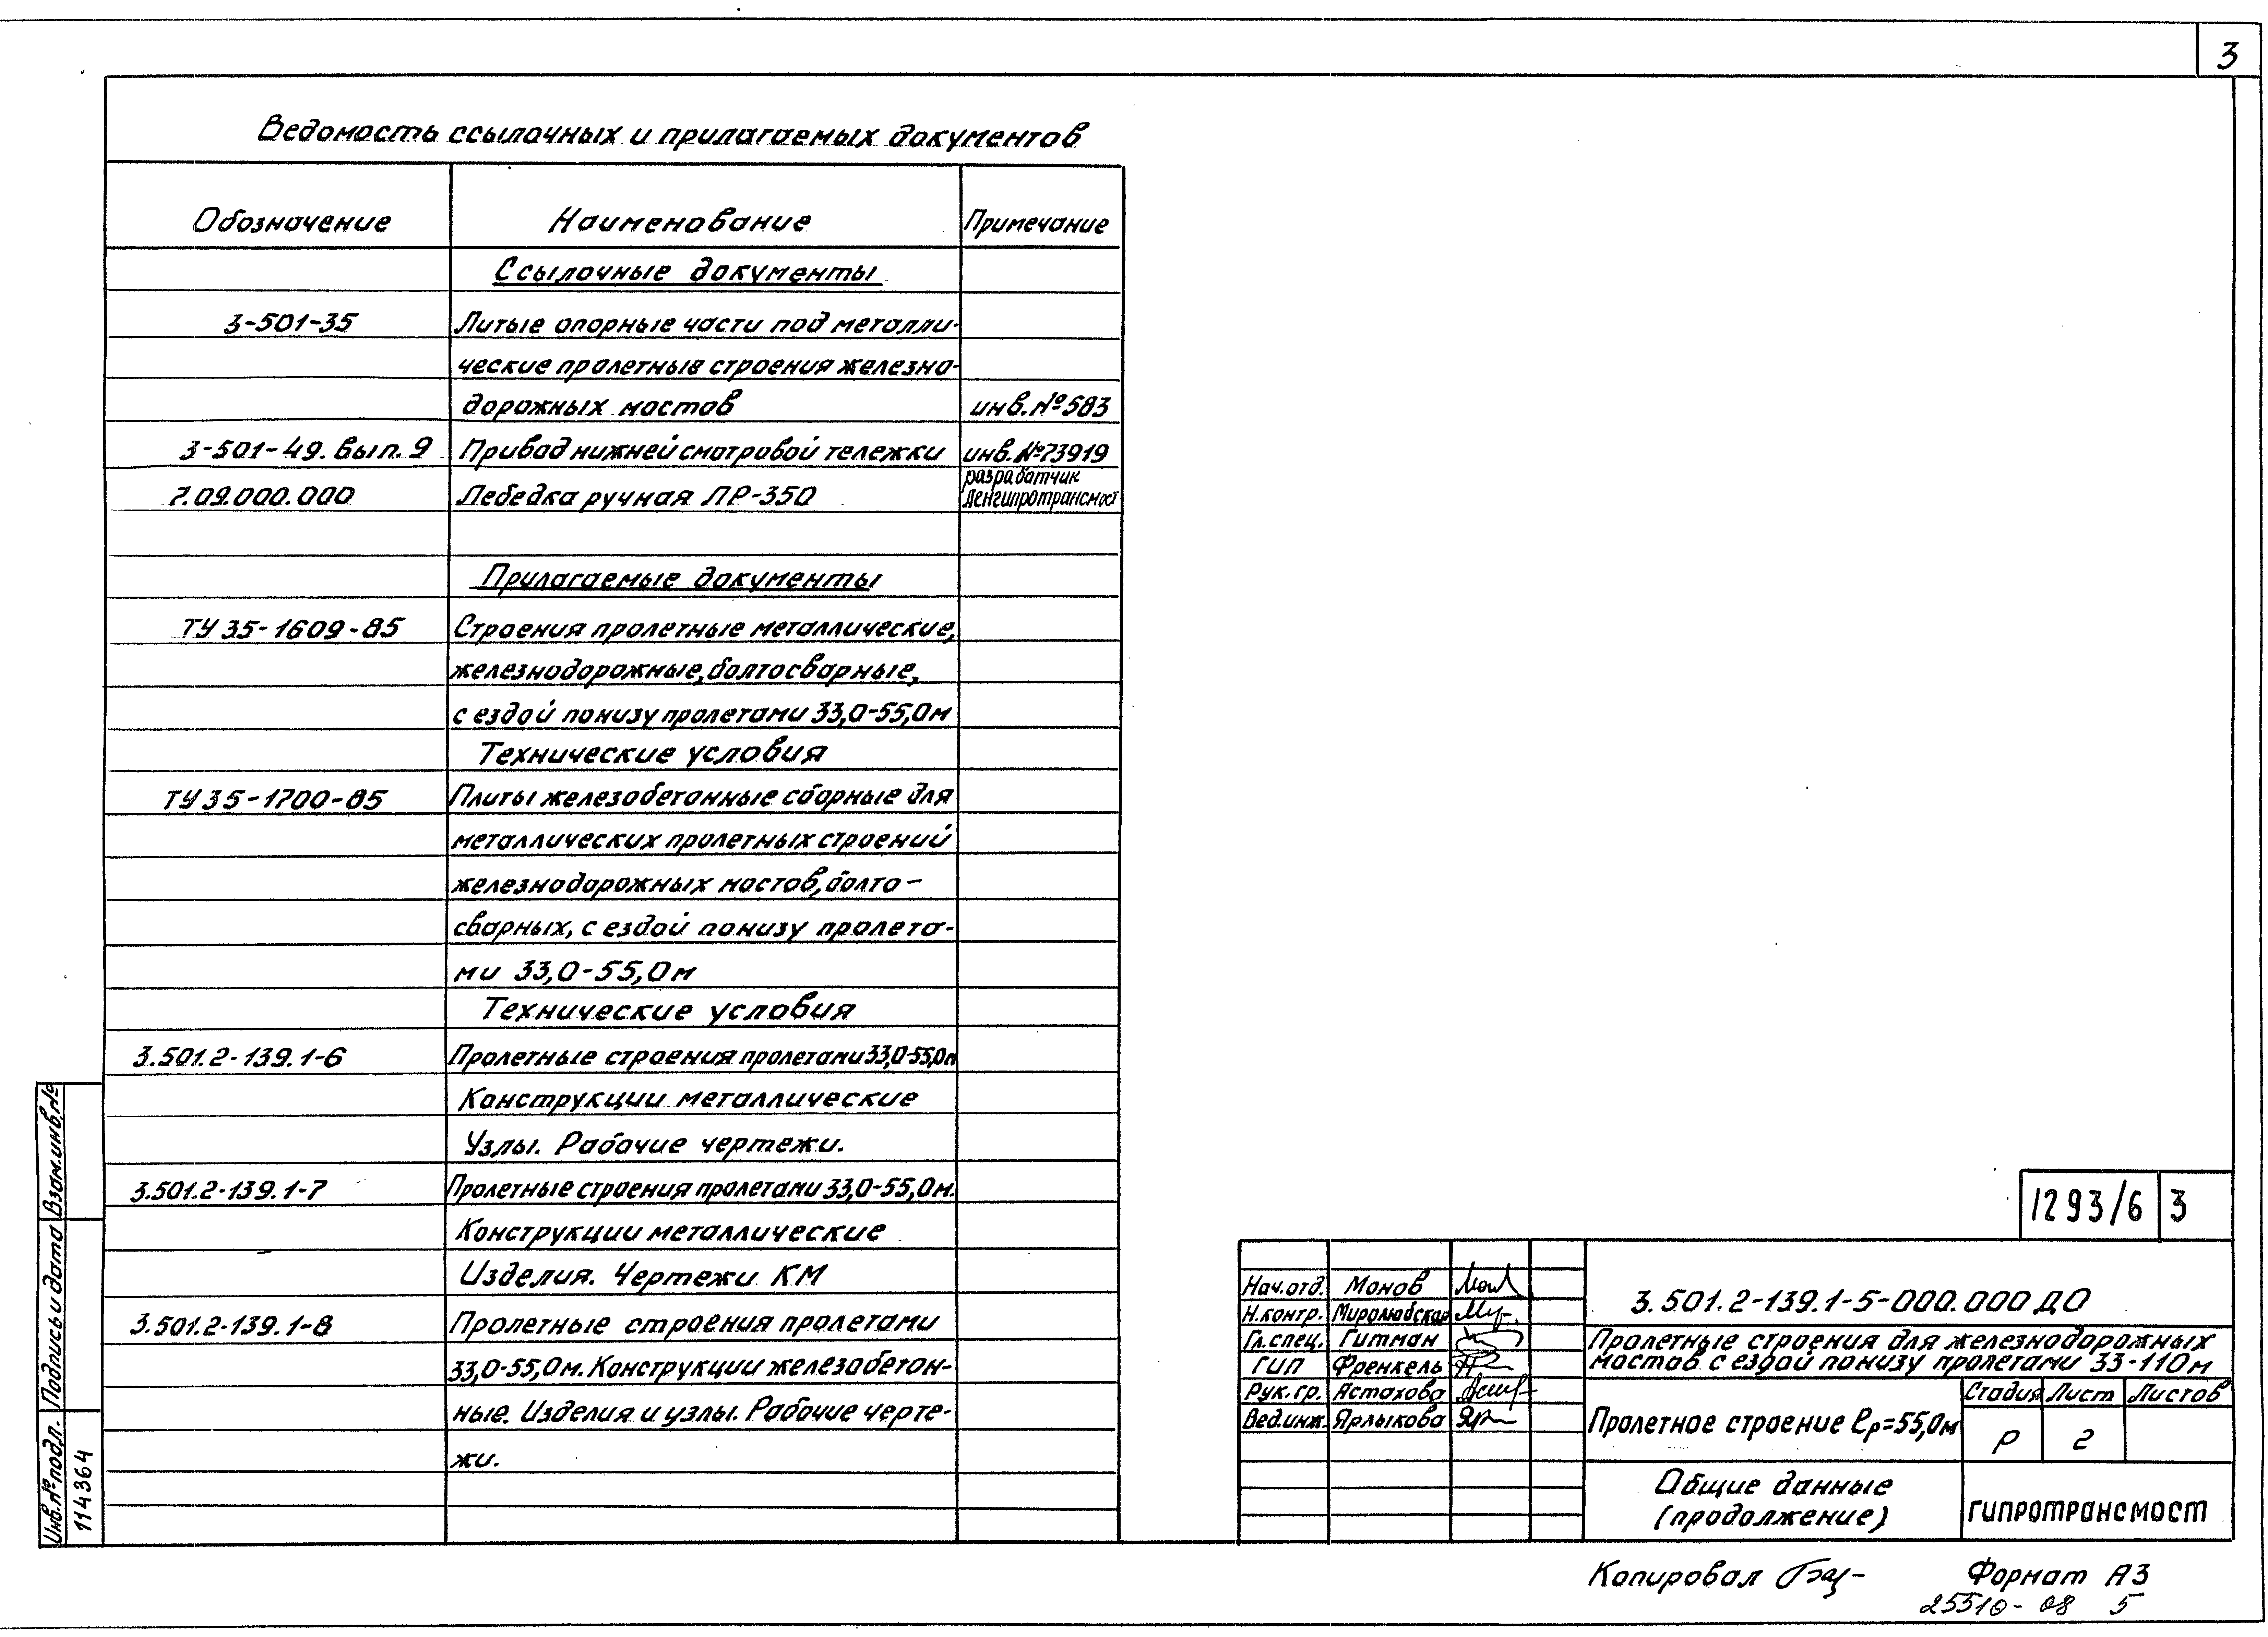 3
Ведомость ссылочных и прилагаемых документов
Обозначение Наименование Примечание
Ссылочные документы
3-501-35 Литые опорные части под металли-
ческие пролетные строения железно-
дорожных мостов инв.№583
3-501-49. Вып. 9 Привод нижней смотровой тележки инв.№73919
7.09.000.000 Лебедка ручная ЛР-350 разработчик
Ленгипротрансмост
Прилагаемые документы
ТУ 35-1609-85 Строения пролетные металлические,
железнодорожные, болтосварные,
с ездой понизу пролетами 33,0-55,0м
Технические условия
ТУ 35-1700-85 Плиты железобетонные сборные для
металлических пролетных строений
железнодорожных мостов, болто-
сварных, с ездой понизу пролета-
ми 33,0-55,0м
Технические условия
3.501.2-139.1-6 Пролетные строения пролетами 33,0-55,0м
Конструкции металлические
Узлы. Рабочие чертежи.
3.501.2-139.1-7 Пролетные строения пролетами 33,0-55,0м.
Конструкции металлические
Изделия. Чертежи КМ
3.501.2-139.1-8 Пролетные строения пролетами
33,0-55,0м. Конструкции железобетон-
ные. Изделия и узлы. Рабочие черте-
жи.
Взам.инв.№
Подпись и дата
Инв.№подл.
114364
1293/6 3
Нач.отд. Монов
Н.контр. Миролюбская
Гл.спец. Гитман
ГИП Френкель
Рук.гр. Астахова
Вед.инж. Ярлыкова
3.501.2-139.1-5-000.000 ДО
Пролетные строения для железнодорожных
мостов с ездой понизу пролетами 33-110м
Пролетное строение ℓр=55,0м
Стадия Лист Листов
Р 2
Общие данные
(продолжение)
ГИПРОТРАНСМОСТ
Копировал Формат А3
25510-08 5